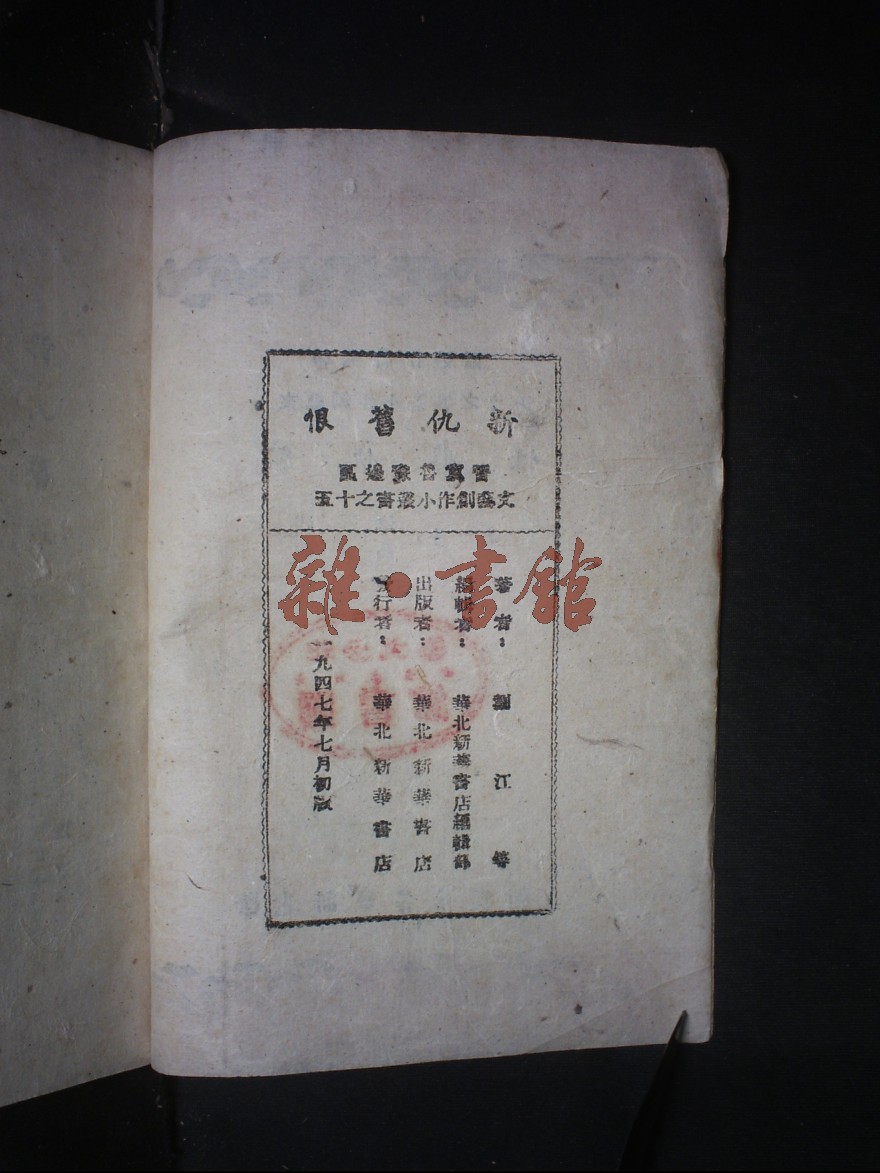 新仇舊恨
晉冀魯豫邊區
文藝創作小叢書之十五
雜·書館
著者：劉江等
編輯者：華北新華書店編輯部
出版者：華北新華書店
發行者：華北新華書店
一九四七年七月初版